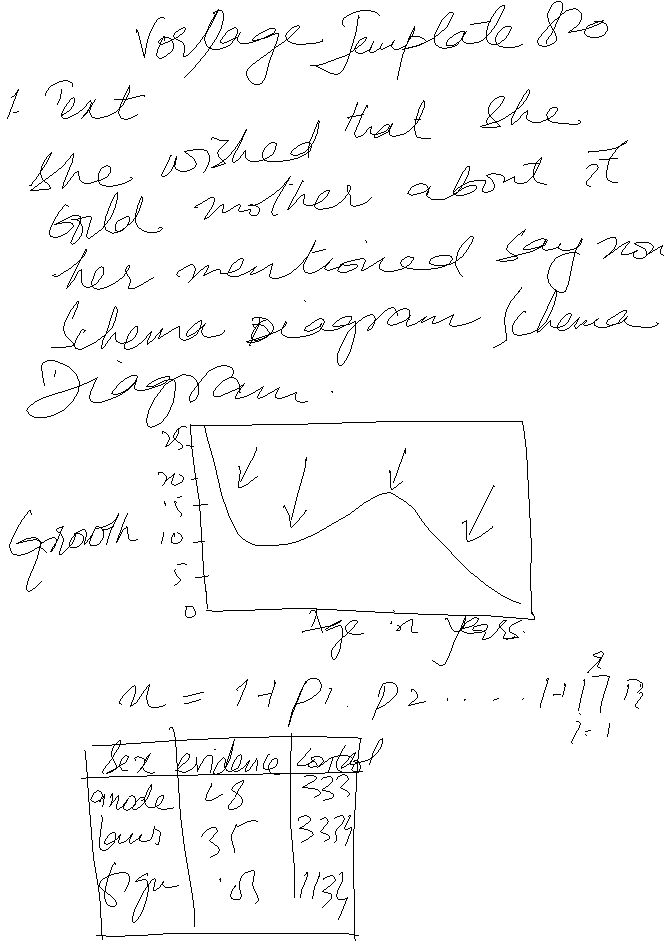 Vorlage Template 820
1. Text
She wished that she
told mother about it
her mentioned say non
Schema Diagram Schema
Diagram.
25
20
15
Growth 10
5
0
Age in years.
n = 1+ p1. p2 ..... 1+
i=1
Sex evidence control
anode 48 333
laws 35 3334
1134